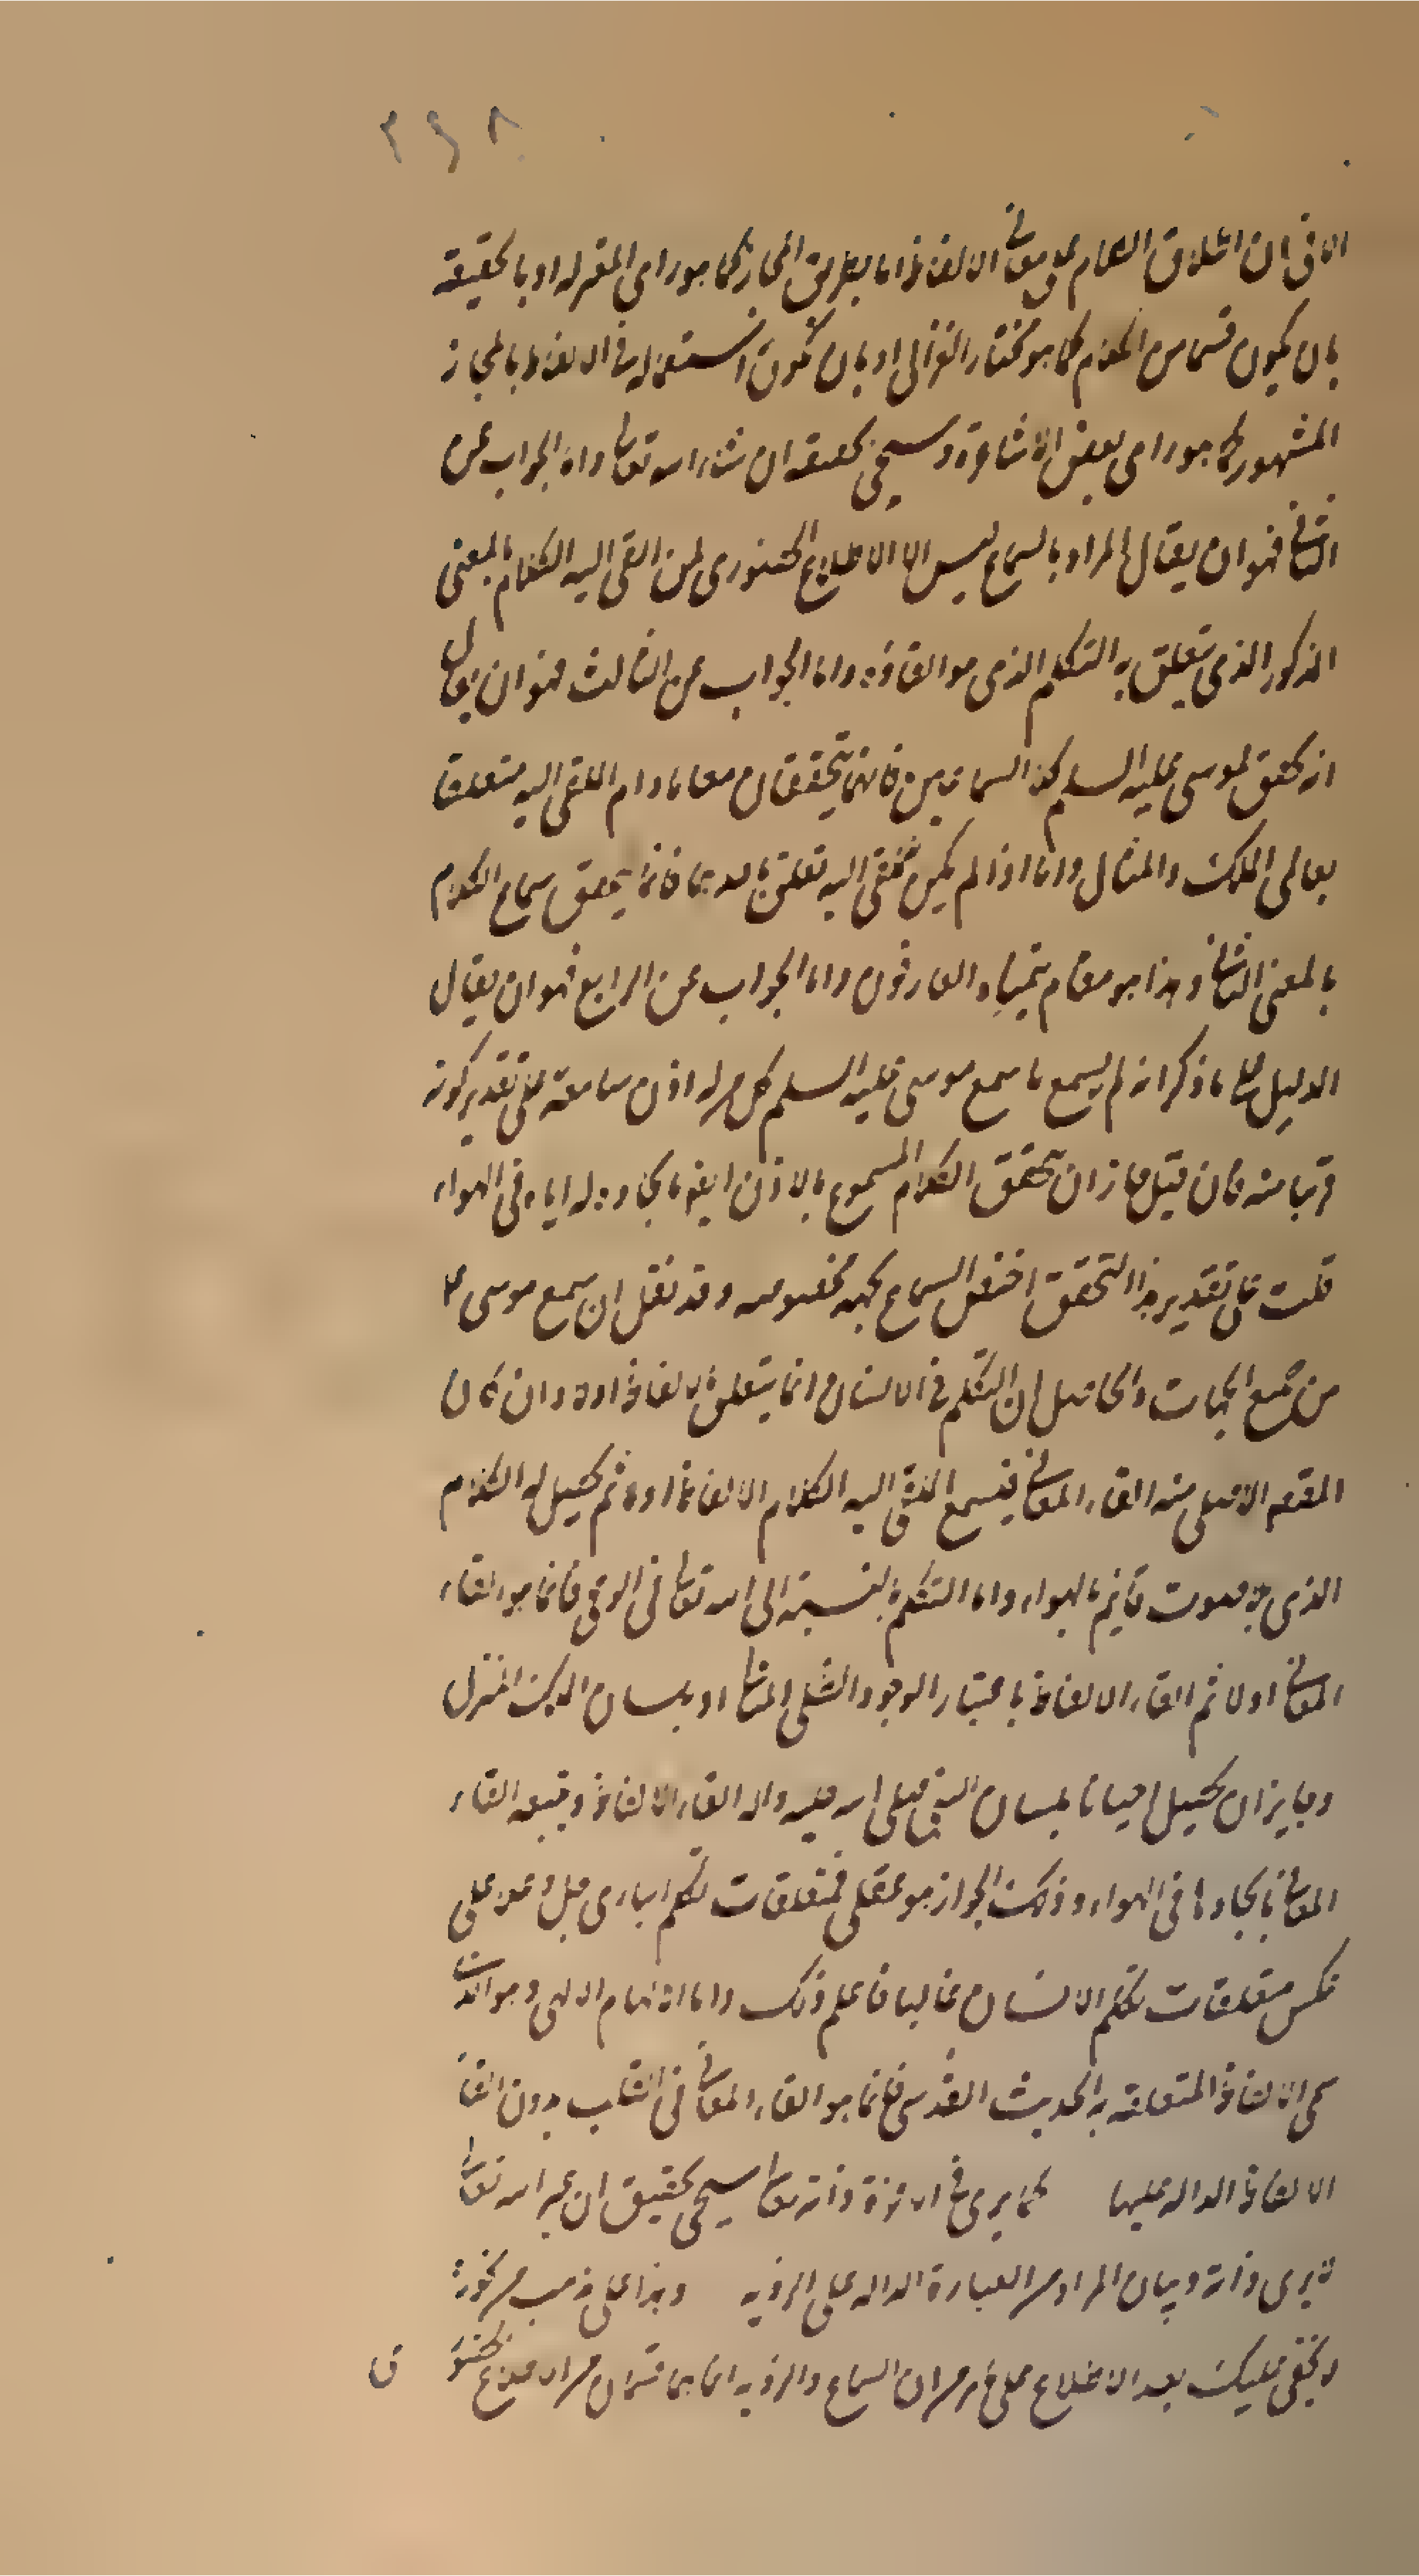 ٣٩٨
الا فى ان اطلاق الكلام على معانى الالفاظ اما بطريق المجاز كما هو راى المعتزله او بالحقيقه
بان يكون قسما من الكلام كما هو مختار الغزالى او بان يكون استعماله فى الالفاظ بالمجاز
المشهور كما هو راى بعض الاشاعرة وسيجى تحقيقه ان شاء الله تعالى واما الجواب عن
الثانى فهو ان يقال المراد بالسماع ليس الا الاطلاع الحضورى لمن القى اليه الكلام بالمعنى
المذكور الذى يتعلق به التكلم الذى هو القاؤه واما الجواب عن الثالث فهو ان يقال
انه تحقق لموسى عليه السلم كلا السماعين فانهما يتحققان معا مادام الملقى اليه متعلقا
بعالمى الملك والمثال واما اذا لم يكن للملقى اليه تعلق باحدهما فانما يتحقق سماع الكلام
بالمعنى الثانى وهذا هو مقام يتمناه العارفون واما الجواب عن الرابع فهو ان يقال
الدليل على ما ذكر انه لم يسمع ما سمع موسى عليه السلم كل من له اذن سامعة على تقدير كونه
قريبا منه فان قيل جاز ان تحقق الكلام المسموع بالاذن ايضا بايجاده له اياه فى الهواء
قلت على تقدير هذا التحقق اختص السماع بجهه مخصوصه وقد نقل ان سمع موسى ع
من جميع الجهات والحاصل ان التكلم فى الانسان انما يتعلق بالالفاظ اولا وان كان
المقصد الاصلى منه القاء المعانى فيسمع الملقى اليه الكلام الالفاظ اولا ثم يحصل له الكلام
الذى هو صوت قايم بالهواء واما التكلم بالنسبة الى الله تعالى فى الوحى فانما هو القاء
المعانى اولا ثم القاء الالفاظ باعتبار الوجود الظلى المثالى او بلسان الملك المنزل
وجايز ان يحصل احيانا بلسان النبى صلى الله عليه واله القاء الالفاظ ويتبعه القاء
المعانى بايجادها فى الهواء وذلك الجواز هو عقلى فمتعلقات تكلم البارى جل وعز على
عكس متعلقات تكلم الانسان غالبا فاعلم ذلك واما الالهام الالهى وهو الذى
سمى الالفاظ المتعلقه به الحديث القدسى فانما هو القاء المعانى فى القلب بدون القاء
الالفاظ الداله عليها كما يرى فى الاخرة ذاته تعالى سيجى تحقيق ان غير الله تعالى
يرى ذاته وبيان المراد من العبارة الداله على الرؤيه وهذا على مذهب من يجوزه
ويخفى عليك بعد الاطلاع على ان السماع والرؤيه انما هما قسمان من الاطلاع الحضورى